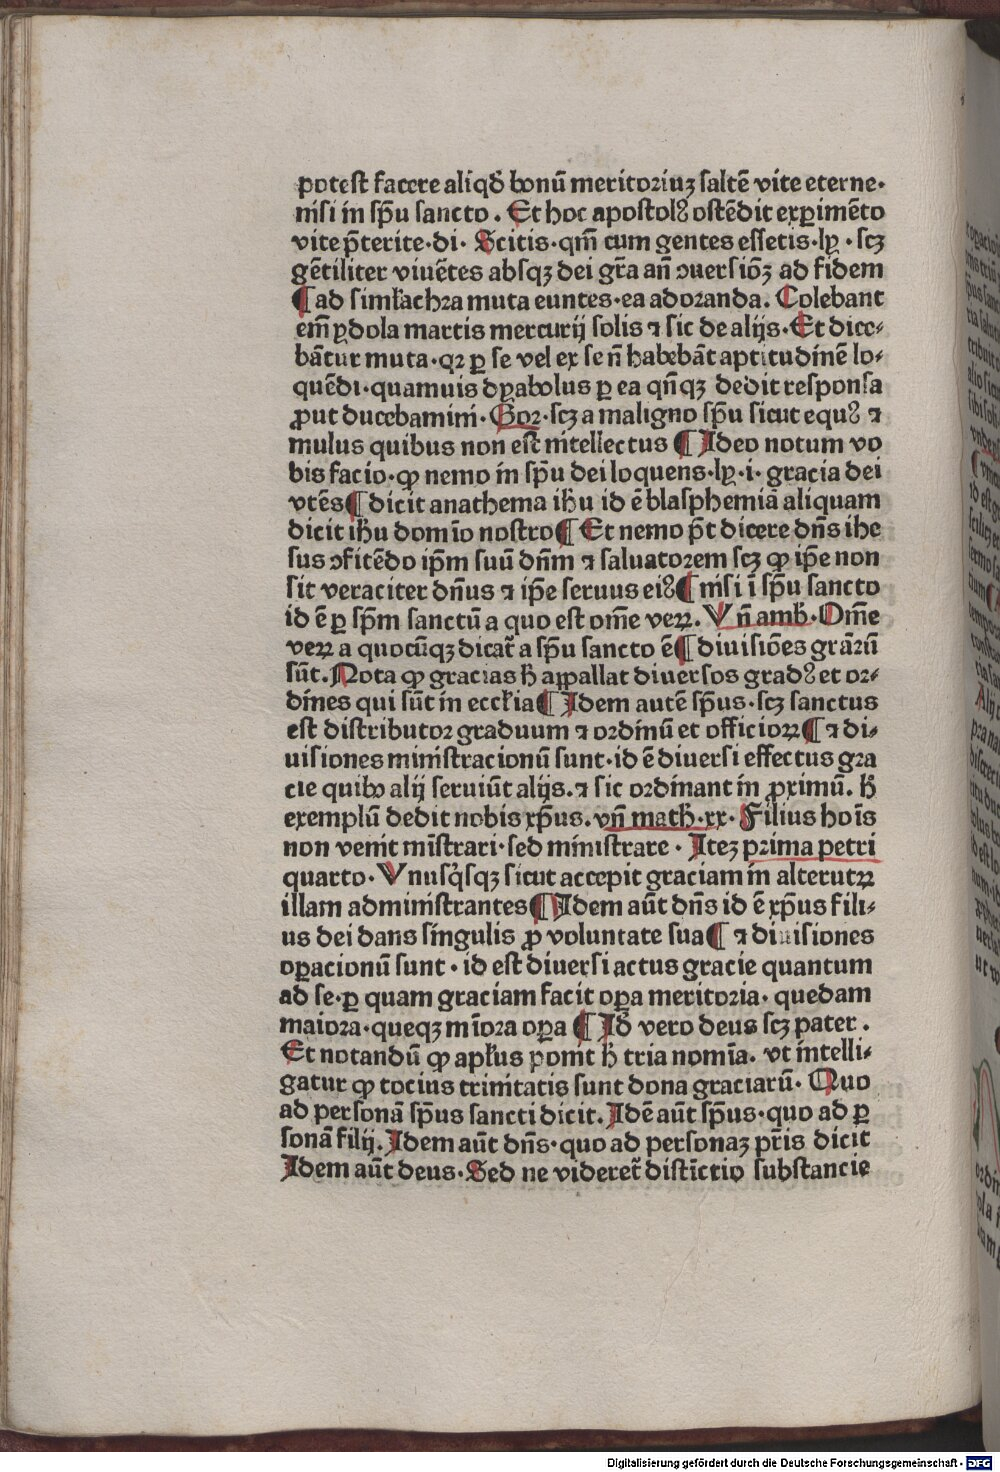 potest facere aliqđ bonū meritoriuʒ saltē vite eterne·
nisi in sp̄u sancto . Et hoc apostolꝰ ostēdit exꝑimēto
vite p̄terite·di· Scitis·qm̄ cum gentes essetis·lꝫ · scꝫ
gētiliter viuētes absqꝫ dei gr̄a an̄ ↄuersiōꝫ ad fidem
¶ ad simłachra muta euntes·ea adoranda. Colebant
em̄ ydola martis mercurij solis ⁊ sic de alijs·Et dice⸗
bātur muta·qꝛ ꝑ se vel ex se n̄ habebāt aptitudinē lo⸗
quēdi·quamuis dyabolus ꝑ ea qn̄qꝫ dedit responsa
ꝓut ducebamini· Gor·scꝫ a maligno sp̄u sicut equꝰ ⁊
mulus quibus non est intellectus ¶ Ideo notum vo
bis facio·ꝙ nemo in sp̄u dei loquens·lꝫ·i· gracia dei
vtēs¶ dicit anathema ih̄u id ē blasphemiā aliquam
dicit ih̄u domīo nostro¶ Et nemo p̄t dicere dn̄s ihe
sus ↄfitēdo ip̄m suū dn̄m ⁊ saluatorem scꝫ ꝙ ip̄e non
sit veraciter dn̄us ⁊ ip̄e seruus eiꝰ¶ nisi ī sp̄u sancto
id ē ꝑ sp̄m sanctū a quo est om̄e veꝝ. Vn̄ amb̄·Om̄e
veꝝ a quocūqꝫ dicat̄ a sp̄u sancto ē¶ diuisiōes grāꝝ
sūt. Nota ꝙ gracias h̄ appallat diuersos gradꝰ et or⸗
dines qui sūt in eccłia¶ Idem autē sp̄us·scꝫ sanctus
est distributor graduum ⁊ ordinū et officioꝝ¶ ⁊ di⸗
uisiones ministracionū sunt·id ē diuersi effectus gra
cie quibꝰ alij seruiūt alijs.⁊ sic ordinant in ꝓximū. h̄
exemplū dedit nobis xp̄us. vn̄ math̄·xx· Filius hoīs
non venit mīstrari·sed ministrare · Iteꝫ prima petri
quarto· Vnusq̄sqꝫ sicut accepit graciam in alterutꝝ
illam administrantes¶ Idem aūt dn̄s id ē xp̄us fili⸗
us dei dans singulis ꝓ voluntate sua¶ ⁊ diuisiones
oꝑacionū sunt · id est diuersi actus gracie quantum
ad se·ꝑ quam graciam facit oꝑa meritoria· quedam
maiora·queqꝫ mīora oꝑa ¶ Id̄ vero deus scꝫ pater .
Et notandū ꝙ apłus ponit h̄ tria nomīa. vt intelli⸗
gatur ꝙ tocius trinitatis sunt dona graciarū· Quo
ad personā sp̄us sancti dicit. Idē aūt sp̄us·quo ad ꝑ
sonā filij. Idem aūt dn̄s·quo ad personaꝫ pr̄is dicit
Idem aūt deus·Sed ne videret̄ distīctio substancie
Digitalisierung gefördert durch die Deutsche Forschungsgemeinschaft · DFG